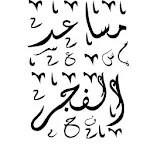 مساعد
الفجر